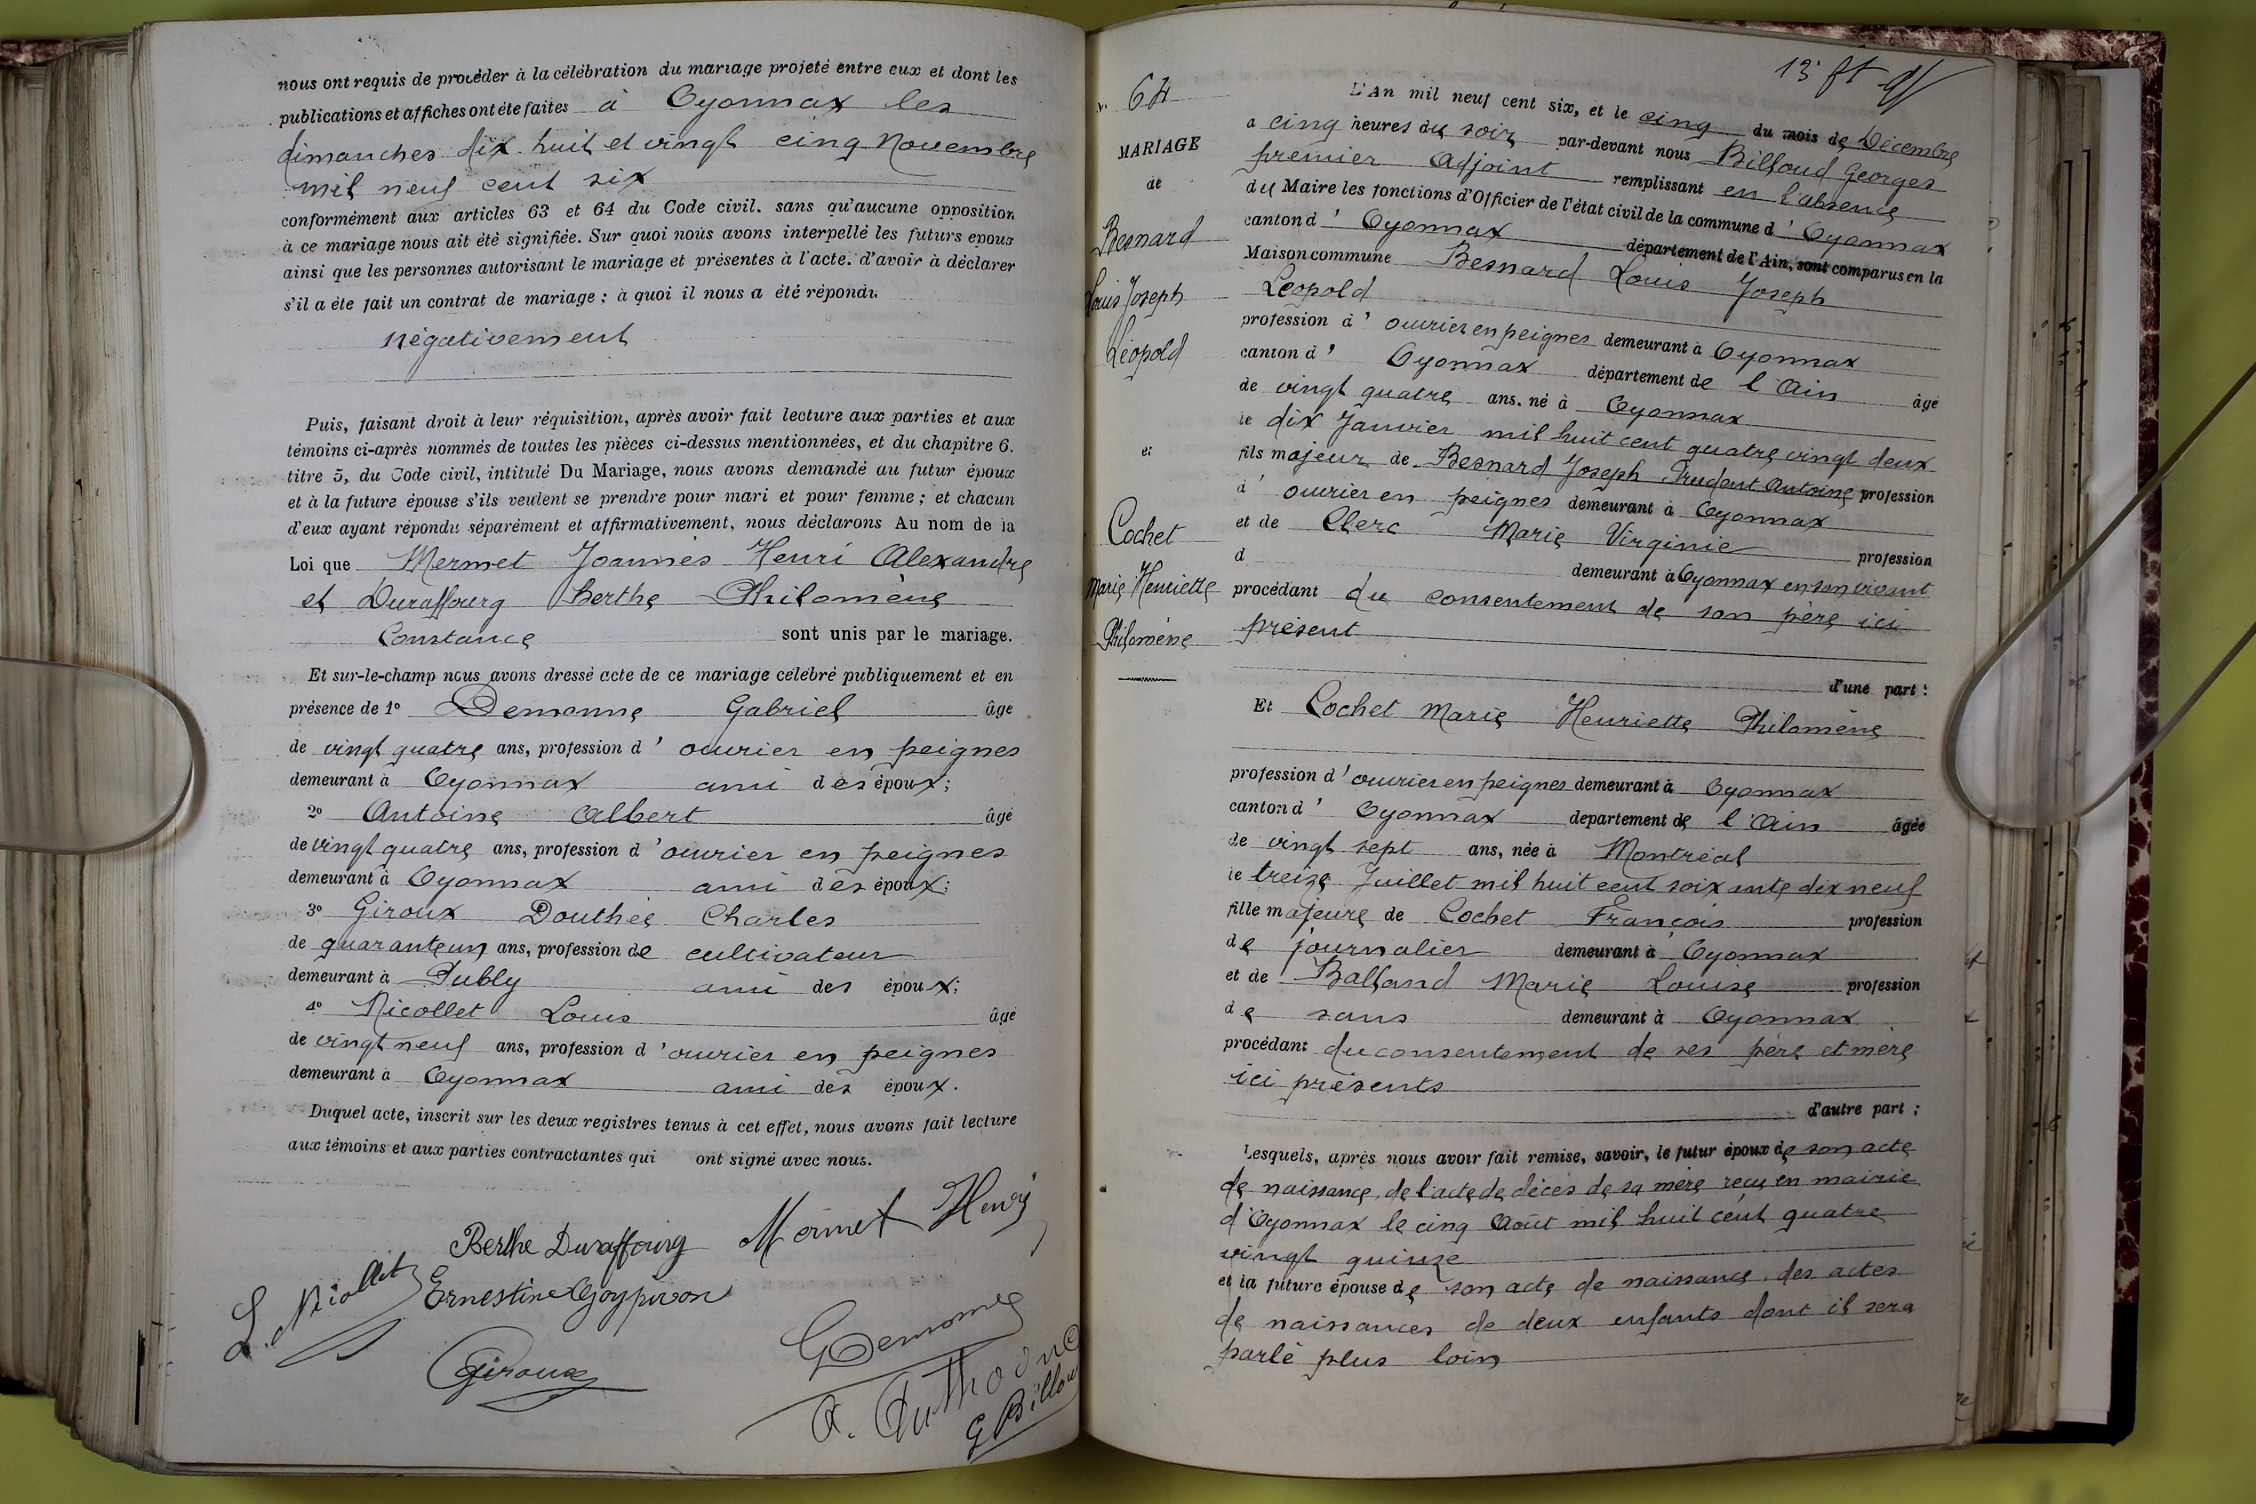 nous ont requis de procéder à la célébration du mariage projeté entre eux et dont les
publications et affiches ont été faites à Oyonnax les
dimanches dix huit et vingt cinq Novembre
mil neuf cent six
conformément aux articles 63 et 64 du Code civil. sans qu'aucune opposition
à ce mariage nous ait été signifiée. Sur quoi nous avons interpellé les futurs epoux
ainsi que les personnes autorisant le mariage et présentes à l'acte. d'avoir à déclarer
s'il a été fait un contrat de mariage ; à quoi il nous a été répondu
négativement
Puis, faisant droit à leur réquisition, après avoir fait lecture aux parties et aux
témoins ci-après nommés de toutes les pièces ci-dessus mentionnées, et du chapitre 6.
titre 5, du Code civil, intitulé Du Mariage, nous avons demandé au futur époux
et à la future épouse s'ils veulent se prendre pour mari et pour femme ; et chacun
d'eux ayant répondu séparément et affirmativement, nous déclarons Au nom de la
Loi que Mermet Joannès Henri Alexandre
et Duraffourg Berthe Philomène
Constance sont unis par le mariage.
Et sur-le-champ nous avons dressé acte de ce mariage célébré publiquement et en
présence de 1º Demonne Gabriel âgé
de vingt quatre ans, profession d' ouvrier en peignes
demeurant à Oyonnax ami des époux ;
2º Antoine Albert âgé
de vingt quatre ans, profession d' ouvrier en peignes
demeurant à Oyonnax ami des époux ;
3º Giroux Douthée Charles
de quarante un ans, profession de cultivateur
demeurant à Publy ami des époux ;
4º Nicollet Louis âgé
de vingt neuf ans, profession d' ouvrier en peignes
demeurant à Oyonnax ami des époux.
Duquel acte, inscrit sur les deux registres tenus à cet effet, nous avons fait lecture
aux témoins et aux parties contractantes qui ont signé avec nous.
Berthe Duraffourg Mermet Henri
L. Nicollet
Ernestine
Giroux
G Demonne
A. Anthoine
G Billoud
13 ft
64
MARIAGE
de
Besnard
Louis Joseph
Léopold
et
Cochet
Marie Henriette
Philomène
L'An mil neuf cent six, et le cinq du mois de Décembre
a cinq heures du soir par-devant nous Billoud Georges
premier Adjoint remplissant en l'absence
du Maire les fonctions d'Officier de l'état civil de la commune d' Oyonnax
canton d' Oyonnax département de l'Ain, sont comparus en la
Maison commune Besnard Louis Joseph
Léopold
profession d' ouvrier en peignes demeurant à Oyonnax
canton d' Oyonnax département de l'Ain âgé
de vingt quatre ans. né à Oyonnax
le dix Janvier mil huit cent quatre vingt deux
fils majeur de Besnard Joseph Prudent Antoine profession
d' ouvrier en peignes demeurant à Oyonnax
et de Clerc Marie Virginie profession
d demeurant à Oyonnax en son vivant
procédant du consentement de son père ici
présent
d'une part :
Et Cochet Marie Henriette Philomène
profession d' ouvrier en peignes demeurant à Oyonnax
canton d' Oyonnax departement de l'Ain âgée
de vingt sept ans, née à Montréal
le treize Juillet mil huit cent soixante dix neuf
fille majeure de Cochet François profession
de journalier demeurant à Oyonnax
et de Balland Marie Louise profession
de sans demeurant à Oyonnax
procédant du consentement de ses père et mère
ici présents
d'autre part ;
Lesquels, après nous avoir fait remise, savoir, le futur époux de son acte
de naissance, de l'acte de décès de sa mère reçu en mairie
d'Oyonnax le cinq Août mil huit cent quatre
vingt quinze
et la future épouse de son acte de naissance. des actes
de naissances de deux enfants dont il sera
parlé plus loin